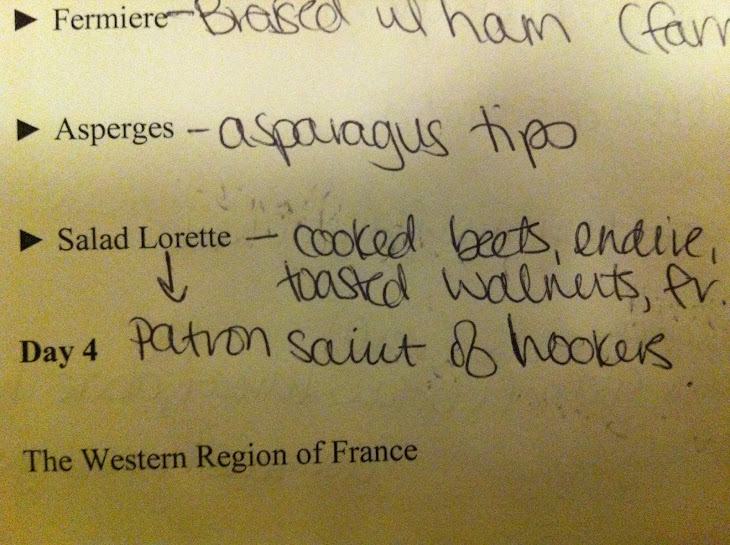 ► Fermiere - Braised w/ ham (farr
► Asperges - asparagus tips
► Salad Lorette - cooked beets, endive,
toasted walnuts, fr.
Day 4 Patron saint of hookers
The Western Region of France